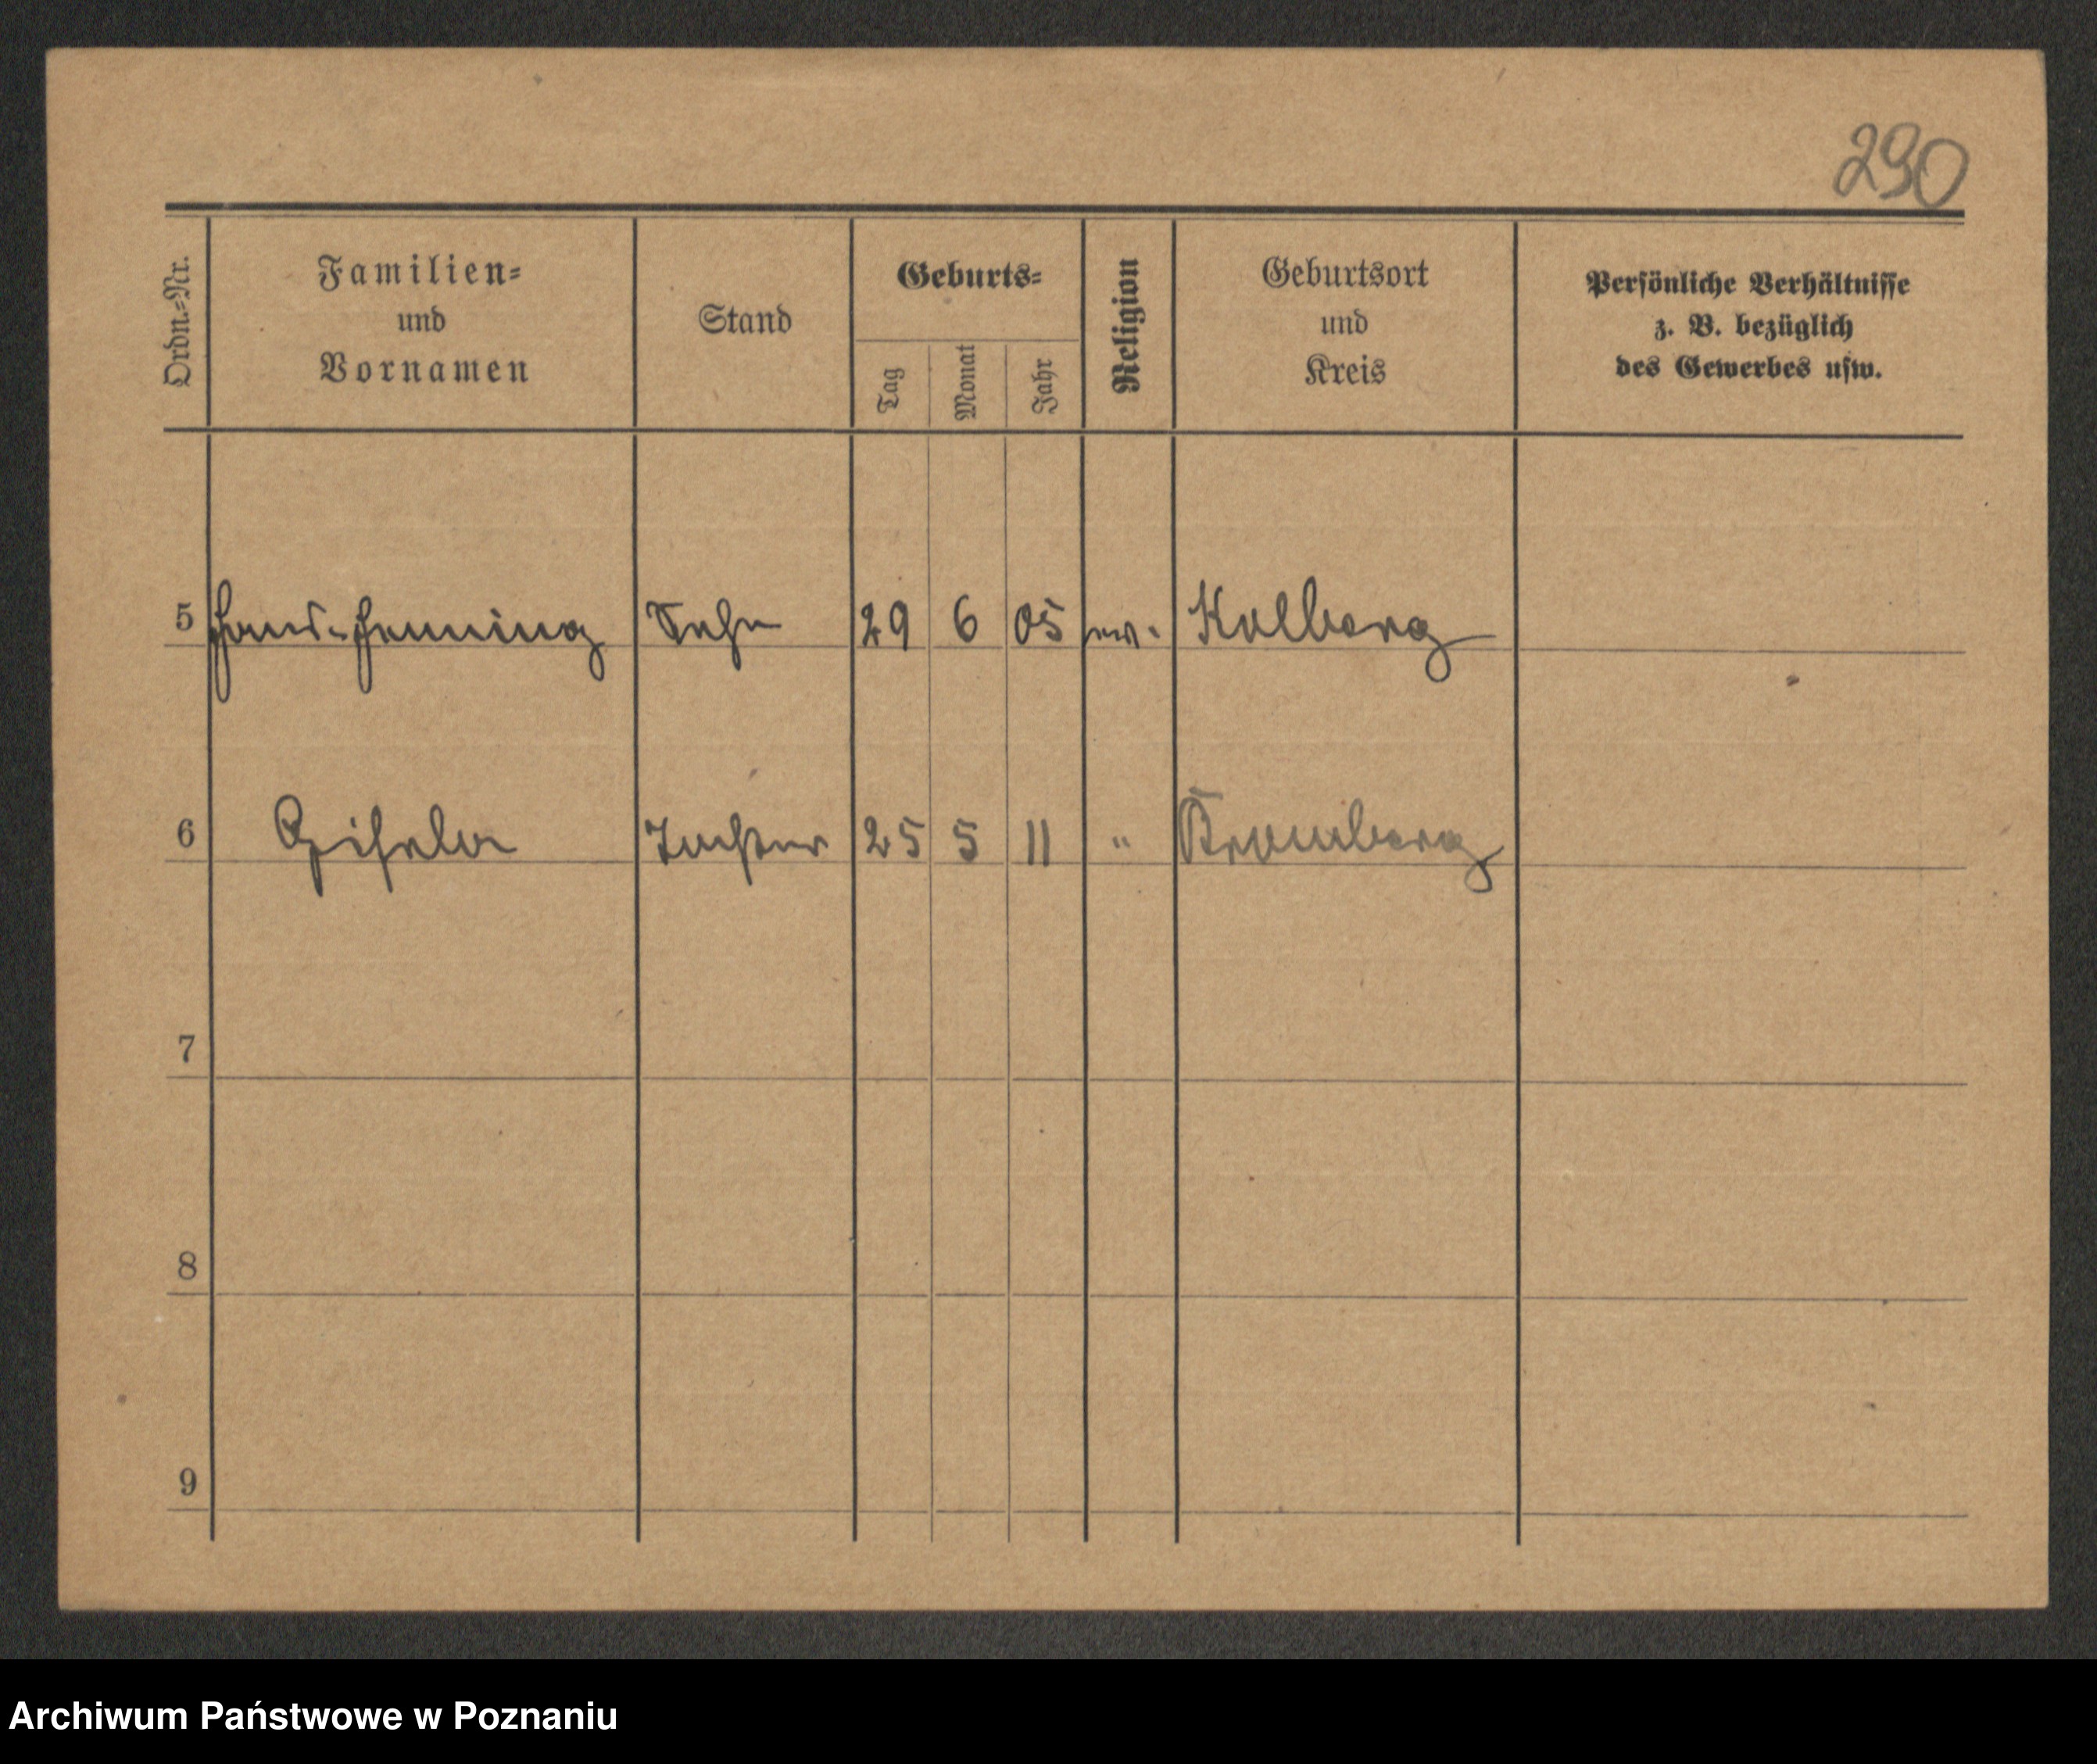 290
Ordn.-Nr.
Familien-
und
Vornamen
Stand
Geburts-
Tag
Monat
Jahr
Religion
Geburtsort
und
Kreis
Persönliche Verhältnisse
z. B. bezüglich
des Gewerbes usw.
5 Hans-Henning Sohn 29 6 05 ev. Kolberg
6 Gisela Tochter 25 5 11 " Bromberg
7
8
9
Archiwum Państwowe w Poznaniu